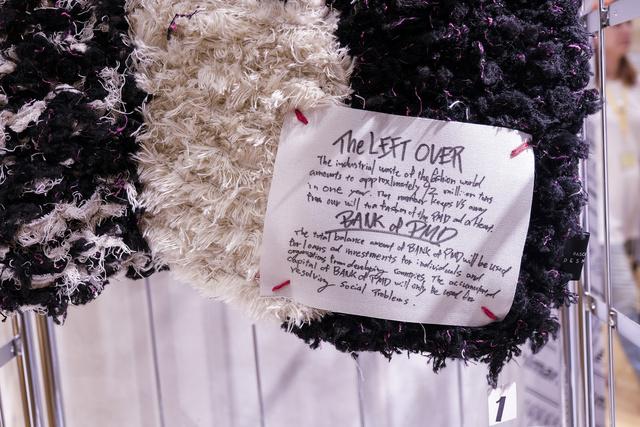 The LEFT OVER
The industrial waste of the fashion world
amounts to approximately 92 million tons
in one year. Our mission keeps us away
from our will to a fashion of the PMD and a heap.
BANK of PMD
The total balance amount of BANK of PMD will be used
for loans and investments for individuals and
organizations from developing countries. The accumulated
capital of BANK of PMD will only be used for
resolving Social Problems.
1